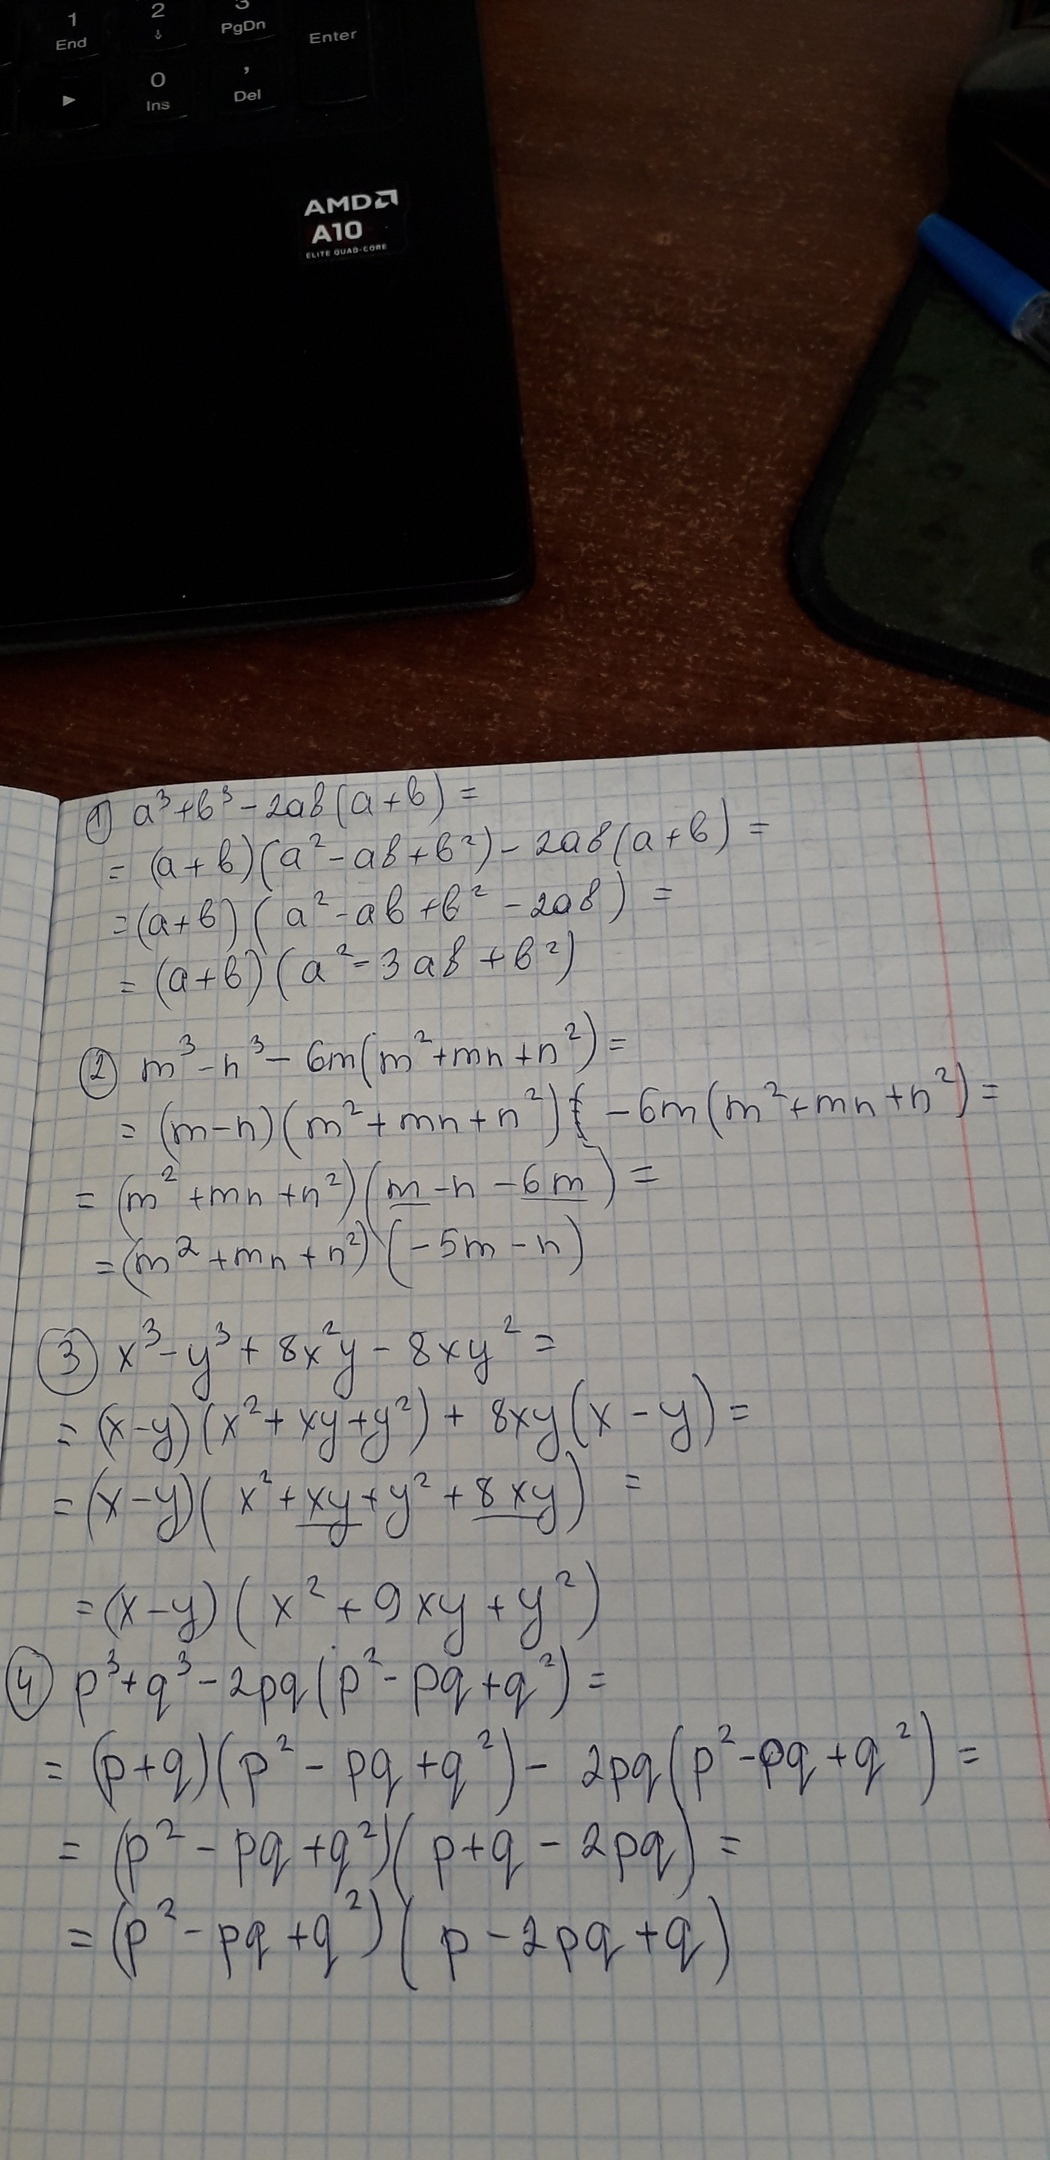 1
End
2
↓
3
PgDn
Enter
►
0
Ins
,
Del
AMD
A10
ELITE QUAD-CORE
① a³+b³-2ab(a+b)=
= (a+b)(a²-ab+b²)-2ab(a+b)=
=(a+b)(a²-ab+b²-2ab)=
= (a+b)(a²-3ab+b²)
② m³-n³-6m(m²+mn+n²)=
= (m-n)(m²+mn+n²)-6m(m²+mn+n²)=
= (m²+mn+n²)(m-n-6m)=
=(m²+mn+n²)(-5m-n)
③ x³-y³+8x²y-8xy²=
= (x-y)(x²+xy+y²)+8xy(x-y)=
= (x-y)(x²+xy+y²+8xy)=
=(x-y)(x²+9xy+y²)
④ p³+q³-2pq(p²-pq+q²)=
= (p+q)(p²-pq+q²)-2pq(p²-pq+q²)=
= (p²-pq+q²)(p+q-2pq)=
= (p²-pq+q²)(p-2pq+q)